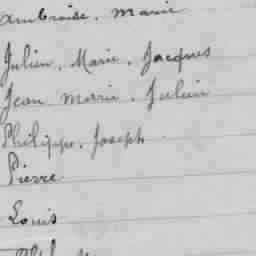 Ambroise, Marie
Julien, Marie, Jacques
Jean Marie, Julien
Philippe, Joseph
Pierre
Louis